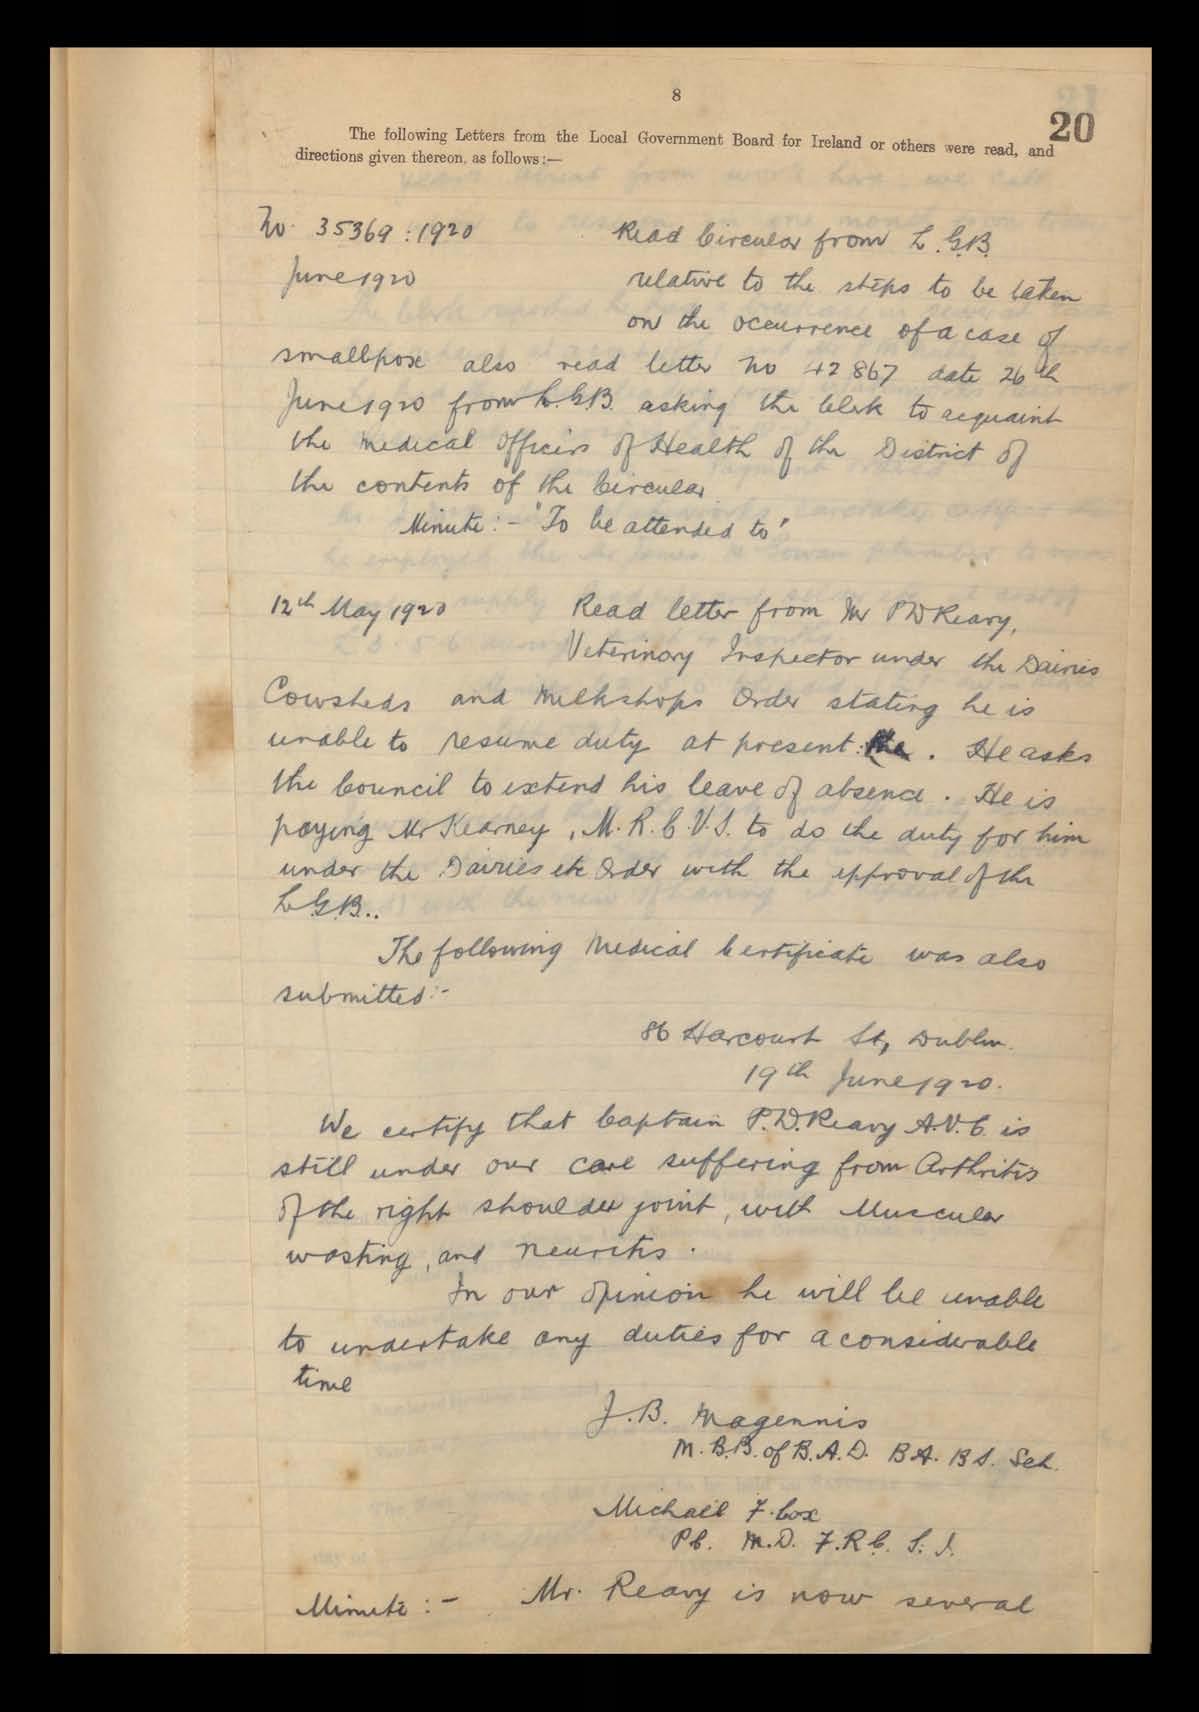 8
20
The following Letters from the Local Government Board for Ireland or others were read, and
directions given thereon, as follows:—
No. 35369 : 1920 Read Circular from L.G.B.
June 1920 relative to the steps to be taken
on the occurrence of a case of
smallpox also read letter No 42867 date 26th
June 1920 from L.G.B. asking the Clerk to acquaint
the Medical Officers of Health of the District of
the contents of the Circular.
Minute:- "To be attended to"
12th May 1920 Read letter from Mr P D Reavy,
Veterinary Inspector under the Dairies
Cowsheds and Milkshops Order stating he is
unable to resume duty at present. He asks
the Council to extend his leave of absence. He is
paying Mr Kearney, M.R.C.V.S. to do the duty for him
under the Dairies etc Order with the approval of the
L.G.B..
The following Medical Certificate was also
submitted:-
86 Harcourt St, Dublin.
19th June 1920.
We certify that Captain P.D. Reavy A.V.C. is
still under our care suffering from Arthritis
of the right shoulder joint, with Muscular
wasting, and neuritis.
In our opinion he will be unable
to undertake any duties for a considerable
time
J.B. Magennis
M.B.B. of B.A.D. B.A. B.S. Sch.
Michael F. Cox
P.C. M.D. F.R.C.S.I.
Minute:- Mr. Reavy is now several